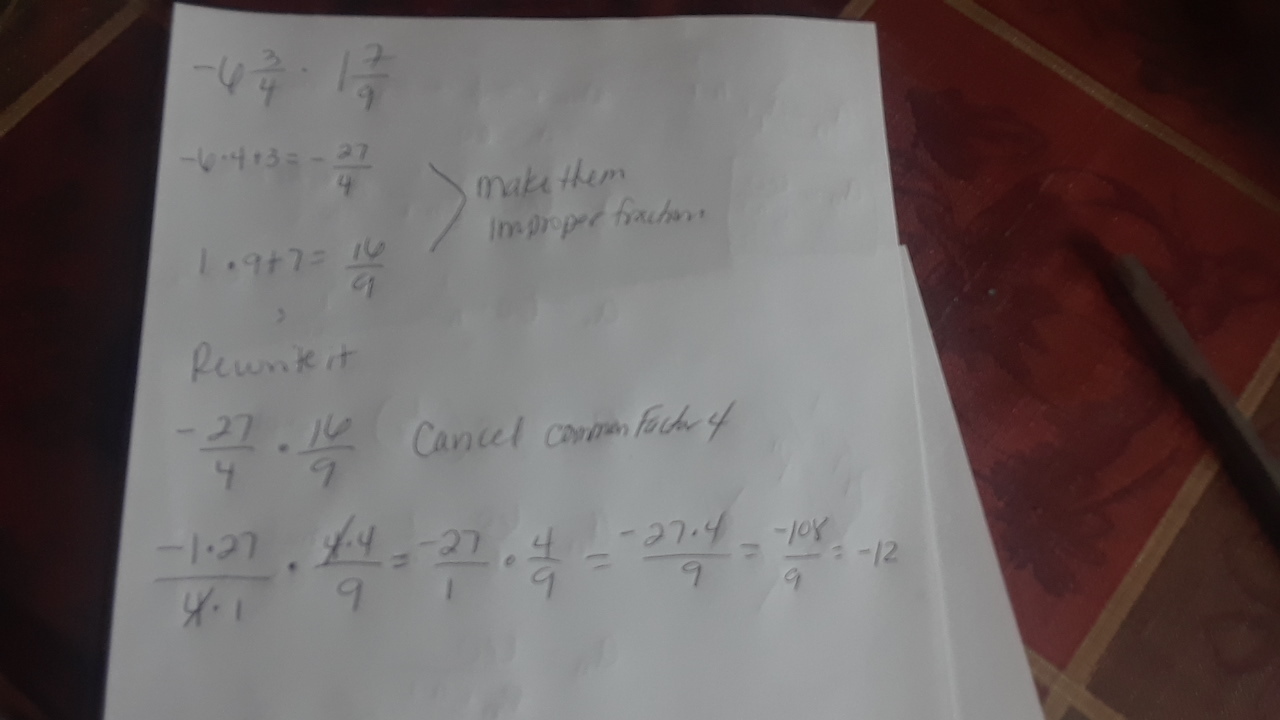 -6 3/4 · 1 7/9
-6·4+3= - 27/4
make them
improper fractions
1·9+7= 16/9
Rewrite it
- 27/4 · 16/9 Cancel common Factor 4
-1·27/4·1 · 4·4/9 = -27/1 · 4/9 = -27·4/9 = -108/9 = -12